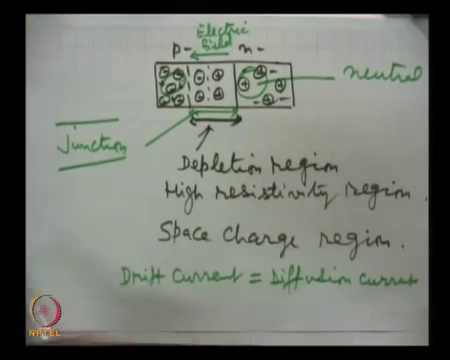 Electric
field
p- n-
neutral
Junction
Depletion region
High resistivity region.
Space charge region.
Drift Current = Diffusion Current
NPTEL